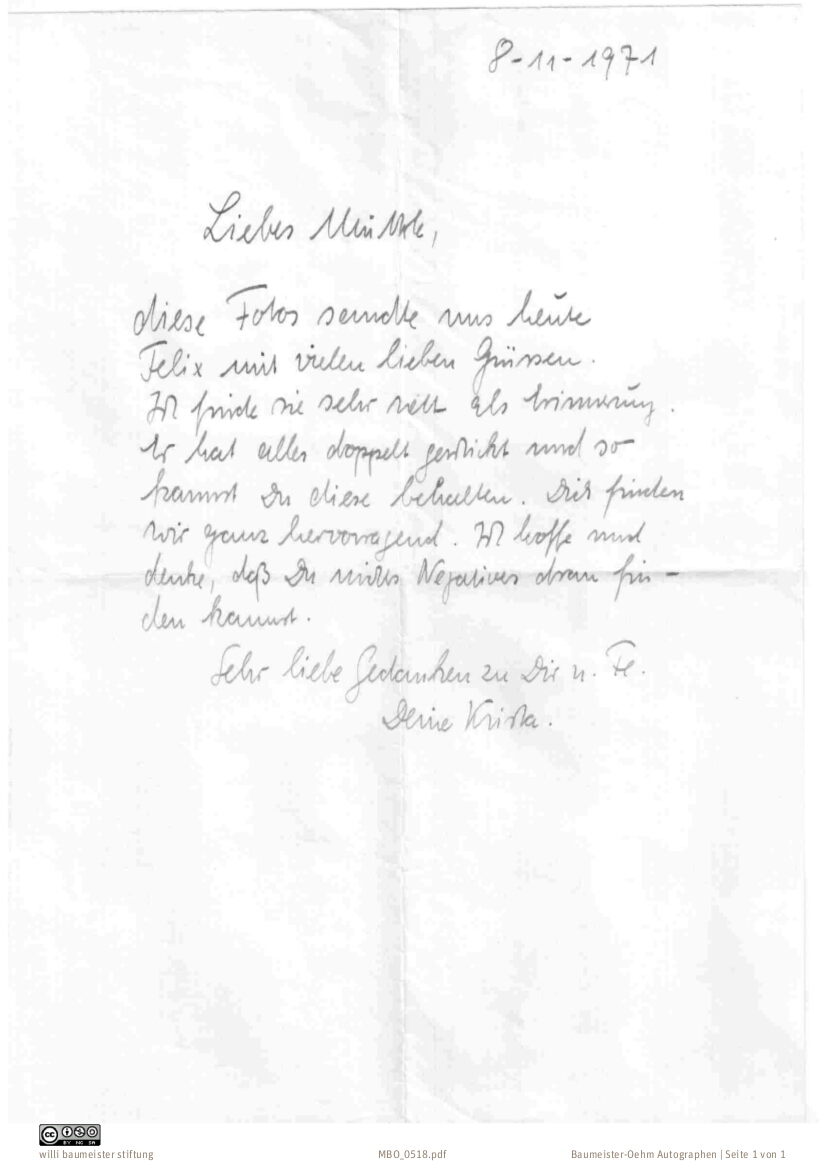 8-11-1971
Liebes
diese Fotos sandte uns heute
Felix mit vielen lieben Grüssen.
Ich finde sie sehr nett als Erinnerung.
Er hat alles doppelt geschickt und so
kannst Du diese behalten. Dich finden
wir ganz hervorragend. Ich hoffe und
denke, daß Du nichts Negatives dran fin-
den kannst.
Sehr liebe Gedanken zu Dir u. Fe.
Deine Krista.
BY NC SA
willi baumeister stiftung
MBO_0518.pdf
Baumeister-Oehm Autographen | Seite 1 von 1